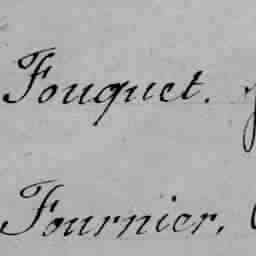 Fouquet.
Fournier,